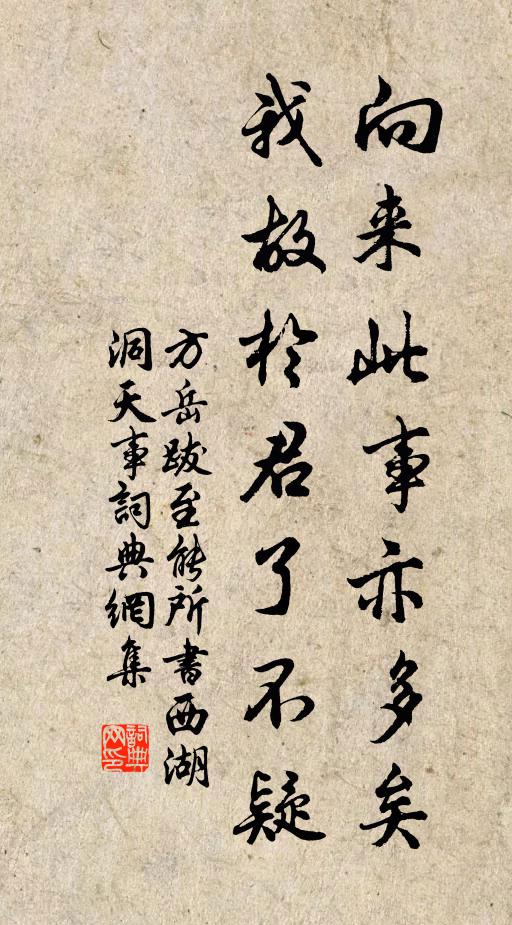 向来此事亦多矣
我故於君了不疑
方岳跋至能所書西湖
洞天事詞典網集
詞典網印